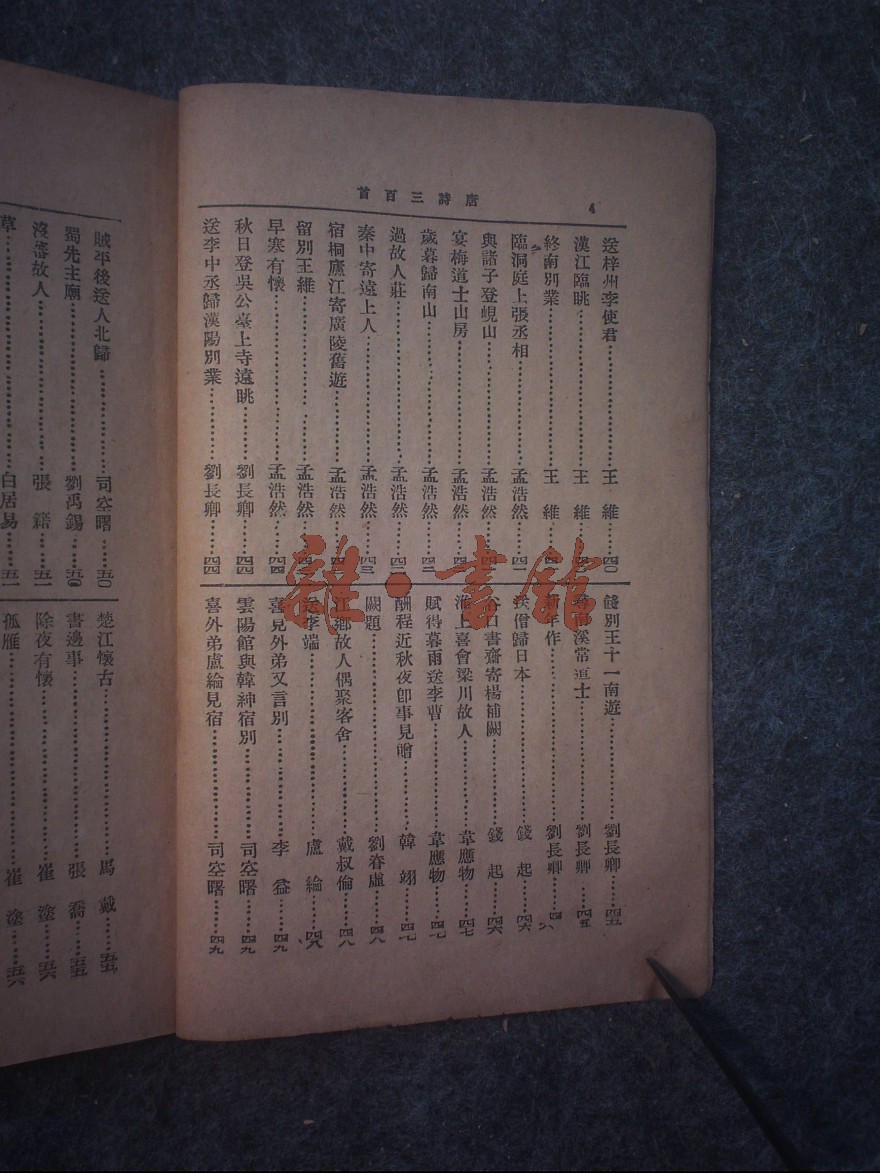 4
唐詩三百首
送梓州李使君…………王維…四〇
漢江臨眺…………王維
終南別業…………王維
臨洞庭上張丞相…………孟浩然…四一
與諸子登峴山…………孟浩然
宴梅道士山房…………孟浩然
歲暮歸南山…………孟浩然
過故人莊…………孟浩然
秦中寄遠上人…………孟浩然…四三
宿桐廬江寄廣陵舊遊…………孟浩然
留別王維…………孟浩然
早寒有懷…………孟浩然…四四
秋日登吳公臺上寺遠眺…………劉長卿…四四
送李中丞歸漢陽別業…………劉長卿…四四
餞別王十一南遊…………劉長卿…四五
尋南溪常道士…………劉長卿…四五
新年作…………劉長卿…四六
送僧歸日本…………錢起…四六
谷口書齋寄楊補闕…………錢起…四六
淮上喜會梁川故人…………韋應物…四七
賦得暮雨送李曹…………韋應物…四七
酬程近秋夜卽事見贈…………韓翃…四七
闕題…………劉眘虛…四八
江鄉故人偶聚客舍…………戴叔倫…四八
送李端…………盧綸…四八
喜見外弟又言別…………李益…四九
雲陽館與韓紳宿別…………司空曙…四九
喜外弟盧綸見宿…………司空曙…四九
賊平後送人北歸…………司空曙…五〇
蜀先主廟…………劉禹錫…五〇
沒蕃故人…………張籍…五一
草…………白居易…五一
楚江懷古…………馬戴…五五
書邊事…………張喬…五五
除夜有懷…………崔塗…五六
孤雁…………崔塗…五六
雜·書館